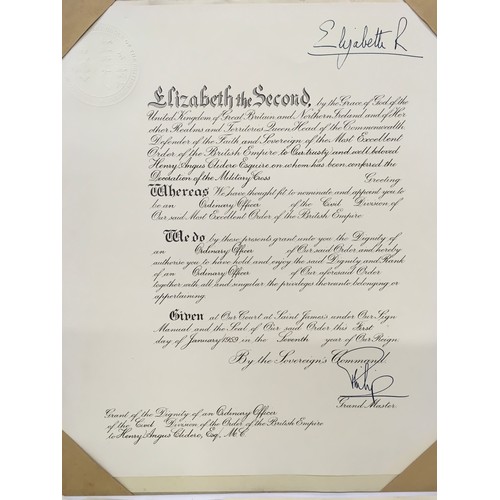 Elizabeth R
Elizabeth the Second, by the Grace of God of the
United Kingdom of Great Britain and Northern Ireland and of Her
other Realms and Territories Queen, Head of the Commonwealth,
Defender of the Faith and Sovereign of the Most Excellent
Order of the British Empire to Our trusty and well beloved
Henry Angus Clidero Esquire on whom has been conferred the
Decoration of the Military Cross Greeting
Whereas We have thought fit to nominate and appoint you to
be an Ordinary Officer of the Civil Division of
Our said Most Excellent Order of the British Empire
We do by these presents grant unto you the Dignity of
an Ordinary Officer of Our said Order and hereby
authorise you to have hold and enjoy the said Dignity and Rank
of an Ordinary Officer of Our aforesaid Order
together with all and singular the privileges thereunto belonging or
appertaining.
Given at Our Court at Saint James's under Our Sign
Manual and the Seal of Our said Order this First
day of January 1959 in the Seventh year of Our Reign.
By the Sovereign's Command.
Philip
Grand Master.
Grant of the Dignity of an Ordinary Officer
of the Civil Division of the Order of the British Empire
to Henry Angus Clidero, Esq., M.C.